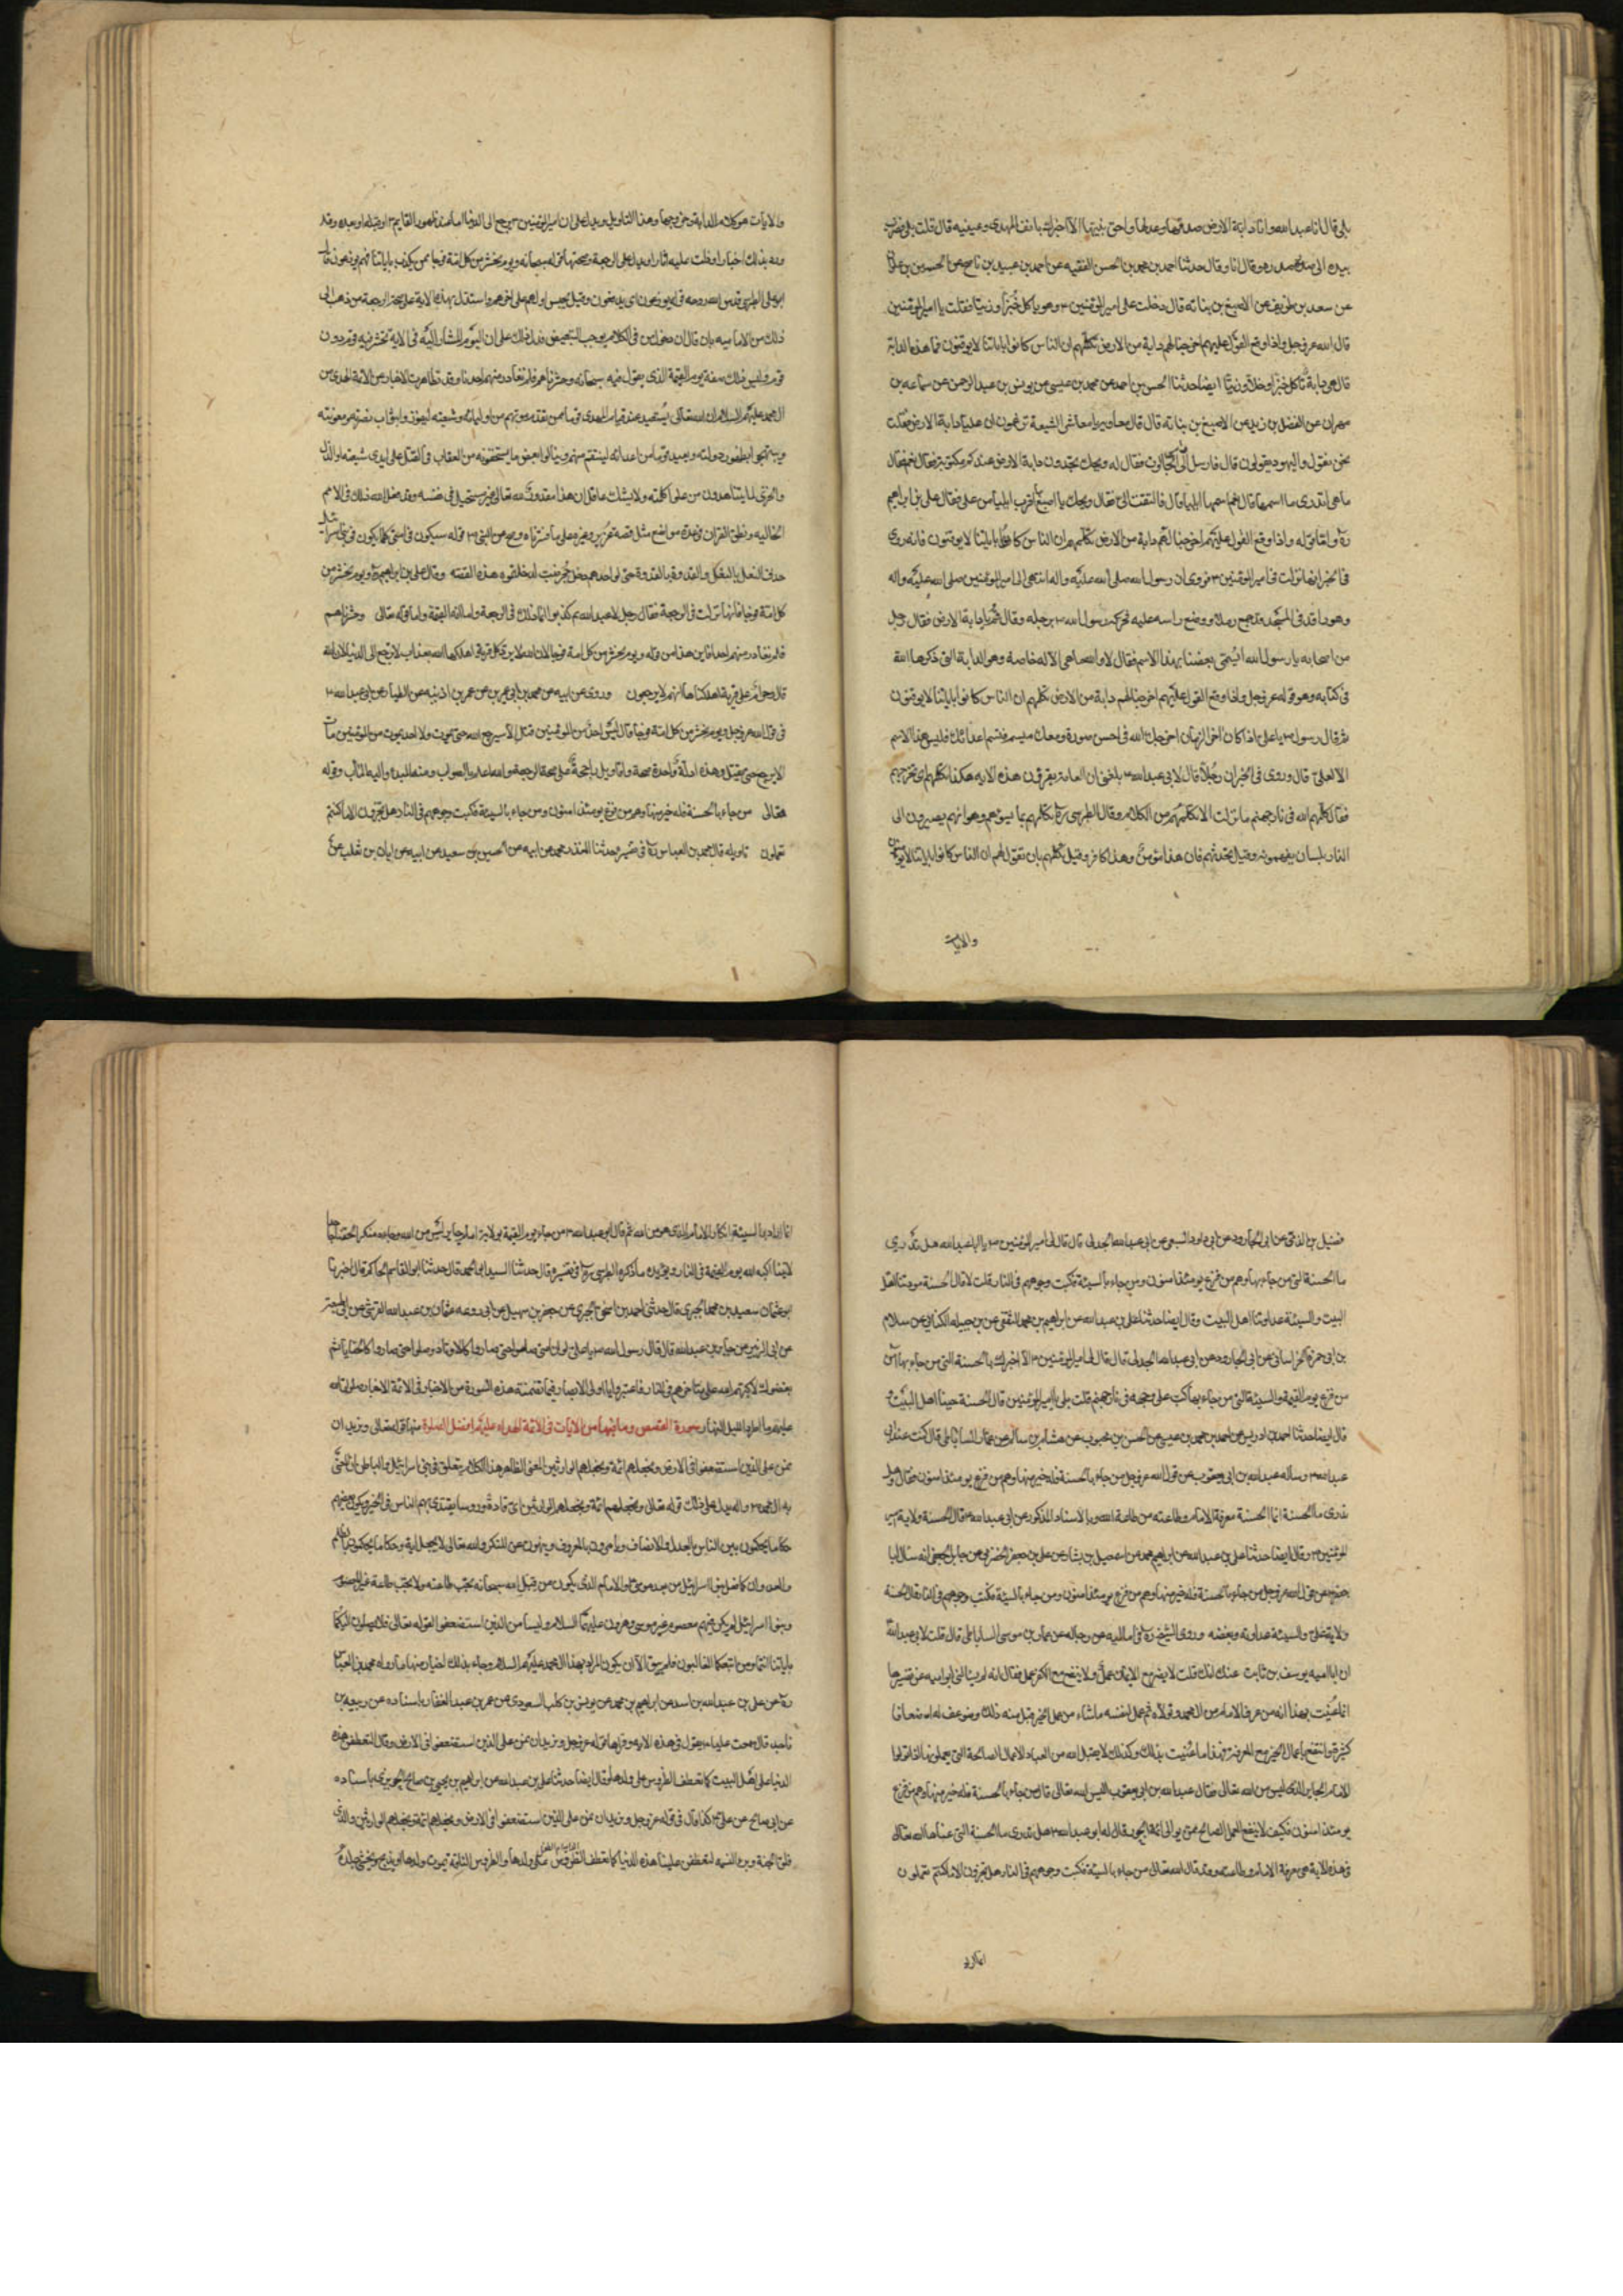 بلى قال انا عبد الله وانا دابة الارض صدقها وعدلها واخو نبيها الا اخبرك بانف المهدى وعينيه قال قلت بلى فضرب
بيده الى صدره وقال انا وقال حدثنا احمد بن محمد بن الحسن الفقيه عن احمد بن عبيد بن ناصح عن الحسين بن علوان
عن سعد بن طريف عن الاصبغ بن نباته قال دخلت على امير المؤمنين ۴ وهو ياكل خبزا وخلا وزيتا فقلت يا امير المؤمنين
قال الله عز وجل واذا وقع القول عليهم اخرجنا لهم دابة من الارض تكلمهم ان الناس كانوا باياتنا لا يوقنون فما هذه الدابة
قال هى دابة تاكل خبزا وخلا وزيتا ايضا حدثنا الحسين بن احمد عن محمد بن عيسى عن يونس بن عبد الرحمن عن سماعه بن
مهران عن الفضل بن زبير عن الاصبغ بن نباته قال قال معاوية يا معاشر الشيعة تزعمون ان عليا دابة الارض فقلت
نحن نقول واليهود يقولون قال فارسل الى راس الجالوت فقال له ويحك تجدون دابة الارض عندكم مكتوبة فقال نعم فقال
ما هى اتدرى ما اسمها قال نعم اسمها ايليا قال فالتفت الى فقال ويحك يا اصبغ ما اقرب ايليا من على وقال على بن ابراهيم
ره واما قوله واذا وقع القول عليهم اخرجنا لهم دابة من الارض تكلمهم ان الناس كانوا باياتنا لا يوقنون فانه روى
فى الخبر انها نزلت فى امير المؤمنين ۴ فروى ان رسول الله صلى الله عليه واله انتهى الى امير المؤمنين صلى الله عليه واله
وهو راقد فى المسجد وقد جمع رملا ووضع راسه عليه فحركه رسول الله ۴ برجله وقال قم يا دابة الارض فقال رجل
من اصحابه يا رسول الله ايسمى بعضنا بهذا الاسم فقال لا والله ما هى الا له خاصة وهو الدابة التى ذكرها الله
فى كتابه وهو قوله عز وجل واذا وقع القول عليهم اخرجنا لهم دابة من الارض تكلمهم ان الناس كانوا باياتنا لا يوقنون
ثم قال رسول ۴ يا على اذا كان اخر الزمان اخرجك الله فى احسن صورة ومعك ميسم تسم اعدائك فليس هذا الاسم
الا لعلى ۴ قال وروى فى الخبر ان رجلا قال لابى عبد الله ۴ بلغنى ان العامة يقرؤن هذه الايه هكذا تكلمهم اى تجرحهم
فقال كلمهم الله فى نار جهنم ما نزلت الا تكلمهم من الكلام وقال الطبرسى ره تكلمهم بما يسؤهم وهو انهم يصيرون الى
النار بلسان يفهمونه وقيل تحدثهم بان هذا مؤمن وهذا كافر وقيل تكلمهم بان تقول لهم ان الناس كانوا باياتنا لا يوقنون
والايات
والايات هو كلام الدابة وخروجها وهذا التاويل ويدل على ان امير المؤمنين ۴ يرجع الى الدنيا اما عند ظهور القايم ۴ او قبله او بعده وقد
ورد بذلك اخبار ودلت عليه اثار او يدل على الرجعة وصحتها قوله سبحانه ويوم نحشر من كل امة فوجا ممن يكذب باياتنا فهم يوزعون قال
ابو على الطبرسى قدس الله روحه فى قوله يوزعون اى يدفعون وقيل يحبس اولهم على اخرهم واستدل بهذه الاية على صحة الرجعة من ذهب الى
ذلك من الاماميه بان قال ان دخول من فى الكلام يوجب التبعيض فدل ذلك على ان اليوم المشار اليه فى الاية تحشر فيه قوم دون
قوم وليس ذلك صفة يوم القيمة الذى يقول فيه سبحانه وحشرناهم فلم نغادر منهم احدا وقد تظاهرت الاخبار عن الائمة الهدى من
ال محمد عليهم السلام ان الله تعالى سيعيد عند قيام المهدى قوما ممن تقدم موتهم من اوليائه وشيعته ليفوزوا بثواب نصرته ومعونته
ويبتهجوا بظهور دولته ويعيد قوما من اعدائه لينتقم منهم وينالوا بعض ما يستحقونه من العقاب فى القتل على ايدى شيعته او الذل
والخزى لما يشاهدون من علو كلمته ولا يشك عاقل ان هذا مقدور لله تعالى غير مستحيل فى نفسه وقد فعل الله ذلك فى الامم
الخاليه ونطق القران فى عدة مواضع مثل قصه عزير وغيره على ما فسرناه وصح عن النبى ۴ قوله سيكون فى امتى كلما يكون فى بنى اسرائيل
حذو النعل بالنعل والقذة بالقذة حتى لو احدهم دخل جحر ضب لدخلتموه هذه القصه وقال على بن ابراهيم ره ويوم نحشر من
كل امة فوجا فانها نزلت فى الرجعة فقال رجل لابى عبد الله
قال وحرام على قرية اهلكناها انهم لا يرجعون وروى عن ابيه عن محمد بن ابى عمير عن عمر بن اذينه عن الطيار عن ابى عبد الله ۴
فى قول الله عز وجل ويوم نحشر من كل امة فوجا قال ليس احد من المؤمنين قتل الا سيرجع الله حتى يموت ولا احد يموت من المؤمنين مات
الا يرجع حتى يقتل وهذه ادلة واحدة صحة واقاويل راجحة على صحة الرجعة والله اعلم بالصواب ومنه المبدء واليه المآب وقوله
تعالى من جاء بالحسنة فله خير منها وهم من فزع يومئذ امنون ومن جاء بالسيئة فكبت وجوههم فى النار هل تجزون الا ما كنتم
تعملون تاويله قال محمد بن العباس ره فى تفسيره حدثنا المنذر بن محمد عن ابيه عن الحسين بن سعيد عن ابيه عن ابان بن تغلب عن
فضيل بن الزبير عن ابى الجارود عن ابى داود السبيعى عن ابى عبد الله الجدلى قال قال لى امير المؤمنين ۴ يا ابا عبد الله هل تدرى
ما الحسنة التى من جاء بها وهم من فزع يومئذ امنون ومن جاء بالسيئة فكبت وجوههم فى النار قلت لا قال الحسنة مودتنا اهل
البيت والسيئة عداوتنا اهل البيت وقال ايضا حدثنا على بن عبد الله عن ابراهيم بن محمد الثقفى عن عبد الله بن جبله الكنانى عن سلام
بن ابى حمزة الخراسانى عن ابى الجارود عن ابى عبد الله الجدلى قال قال لى امير المؤمنين ۴ الا اخبرك بالحسنة التى من جاء بها امن
من فزع يوم القيمة والسيئة التى من جاء بها كب على وجهه فى نار جهنم قلت بلى يا امير المؤمنين قال الحسنة حبنا اهل البيت و
قال ايضا حدثنا احمد بن ادريس عن احمد بن محمد بن عيسى عن الحسن بن محبوب عن هشام بن سالم عن عمار الساباطى قال كنت عند ابى
عبد الله ۴ وساله عبد الله بن ابى يعفور عن قول الله عز وجل من جاء بالحسنة فله خير منها وهم من فزع يومئذ امنون فقال وهل
تدرى ما الحسنة انما الحسنة معرفة الامام وطاعته من طاعة الله وبالاسناد المذكور عن ابى عبد الله ۴ قال الحسنة ولاية امير
المؤمنين ۴ وقال ايضا حدثنا على بن عبد الله عن ابراهيم بن محمد عن اسمعيل بن بشار عن على بن جعفر الحضرمى عن جابر الجعفى انه سال ابا
جعفر عن قول الله عز وجل من جاء بالحسنة فله خير منها وهم من فزع يومئذ امنون ومن جاء بالسيئة فكبت وجوههم فى النار قال الحسنة
ولاية على ۴ والسيئة عداوته وبغضه وروى الشيخ ره فى اماليه عن رجاله عن عمار بن موسى الساباطى قال قلت لابى عبد الله
ان ابا اميه يوسف بن ثابت حدث عنك انك قلت لا يضر مع الايمان عمل ولا ينفع مع الكفر عمل فقال انه لم يسالنى ابو اميه عن تفسيرها
انما عنيت بهذا انه من عرف الامام من ال محمد وتولاه ثم عمل لنفسه ما شاء من عمل الخير قبل منه ذلك وضوعف له اضعافا
كثيرة وانتفع باعمال الخير مع المعرفة فهذا ما عنيت بذلك وكذلك لا يقبل الله من العباد الاعمال الصالحة التى يعملونها اذا تولوا
الامام الجاير الذى ليس من الله تعالى فقال عبد الله بن ابى يعفور اليس الله تعالى قال من جاء بالحسنة فله خير منها وهم من فزع
يومئذ امنون فكيف لا ينفع العمل الصالح ممن يوالى ائمة الجور فقال له ابو عبد الله ۴ هل تدرى ما الحسنة التى عناها الله تعالى
فى هذه الاية هى معرفة الامام وطاعته وقد قال الله تعالى من جاء بالسيئة فكبت وجوههم فى النار هل تجزون الا ما كنتم تعملون
انما اراد
انما اراد بالسيئة انكار الامام الذى هو من الله ثم قال ابو عبد الله ۴ من جاء يوم القيمة بولاية امام جاير ليس من الله وجاء منكرا لحقنا جاحدا
لولايتنا اكبه الله يوم القيمة فى النار ويؤيده ما ذكره الطبرسى ره فى تفسيره قال حدثنا السيد ابو الحمد قال حدثنا ابو القاسم الحاكم قال اخبرنا
ابو عثمان سعيد بن محمد الحيرى قال حدثنى احمد بن اسحق الحيرى عن جعفر بن سهيل عن ابى زرعه عثمان بن عبد الله القرشى عن ابن لهيعة
عن ابى الزبير عن جابر بن عبد الله قال قال رسول الله ۴ يا على لو ان امتى صاموا حتى صاروا كالاوتاد وصلوا حتى صاروا كالحنايا ثم
بغضوك لاكبهم الله على مناخرهم فى النار فاعتبروا يا اولى الابصار فيما تضمنته هذه السورة من الاخبار فى الائمة الاخيار صلوات الله
عليهم ما اطرد الليل النهار سورة القصص وما فيها من الايات فى الائمة الهداه عليهم افضل الصلوة منها قوله تعالى ونريد ان
نمن على الذين استضعفوا فى الارض ونجعلهم ائمة ونجعلهم الوارثين المعنى الظاهر هذا الكلام يتعلق فى بنى اسرائيل والباطن ان المعنى
به ال محمد ۴ والذى يدل على ذلك قوله تعالى ونجعلهم ائمة ونجعلهم الوارثين اى قادة ورؤسا يقتدى بهم الناس فى الخير ويكون بعضهم
حكاما يحكمون بين الناس بالعدل والانصاف ويامرون بالمعروف وينهون عن المنكر والله تعالى لا يجعل اية وحكاما يحكمون بالظلم
والعدوان كما فعل بنو اسرائيل من بعد موسى ۴ والامام الذى يكون من قبل الله سبحانه يجب طاعته ولا يجب طاعة غير المعصوم
وبنو اسرائيل لم يكن فيهم معصوم غير موسى وهرون عليهما السلام وليسا من الذين استضعفوا لقوله تعالى فلا يصلون اليكما
باياتنا انتما ومن اتبعكما الغالبون فلم يبق الا ان يكون المراد بهذا ال محمد عليهم السلام وجاء بذلك اخبار منها ما رواه محمد بن العباس
ره عن على بن عبد الله بن اسد عن ابراهيم بن محمد عن يوسف بن كليب المسعودى عن عمر بن عبد الغفار باسناده عن ربيعه بن
ناجد قال سمعت عليا ۴ يقول فى هذه الايه وقراها قوله عز وجل ونريد ان نمن على الذين استضعفوا فى الارض وقال لتعطفن هذه
الدنيا على اهل البيت كما تعطف الضروس على ولدها وقال ايضا حدثنا على بن عبد الله عن ابراهيم بن محمد عن يحيى بن صالح الحويزى باسناده
عن ابى صالح عن على ۴ كذا قال فى قوله عز وجل ونريد ان نمن على الذين استضعفوا فى الارض ونجعلهم ائمة ونجعلهم الوارثين والذى
فلق الحبة وبرء النسمه لتعطفن علينا هذه الدنيا كما تعطف الضروس على ولدها والضروس الناقة يموت ولدها او يذبح ويحشى جلده